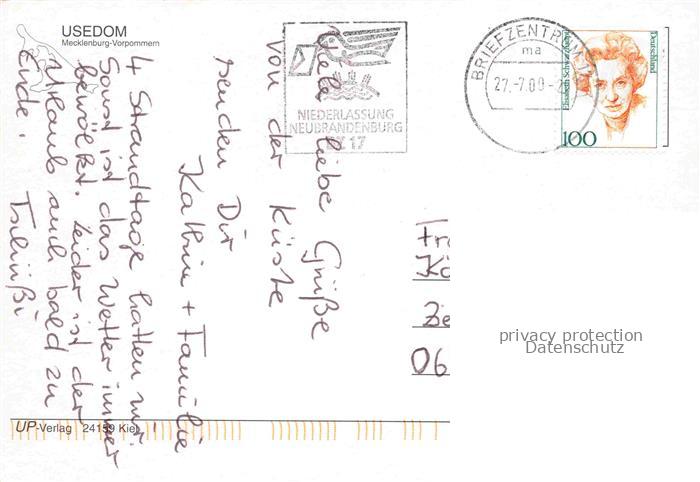 USEDOM
Mecklenburg-Vorpommern
NIEDERLASSUNG
NEUBRANDENBURG
BZ 17
BRIEFZENTRUM 17
ma
27.-7.00-2
Elisabeth Schwarzhaupt
Deutschland
100
Viele liebe Grüße
von der Küste
senden Dir
Kathrin + Familie
4 Strandtage hatten wir.
Sonst ist das Wetter immer
bewölkt. Leider ist der
Urlaub auch bald zu
Ende.
Tschüßi
Fr
Kö
Ze
06
privacy protection
Datenschutz
UP-Verlag 24159 Kiel